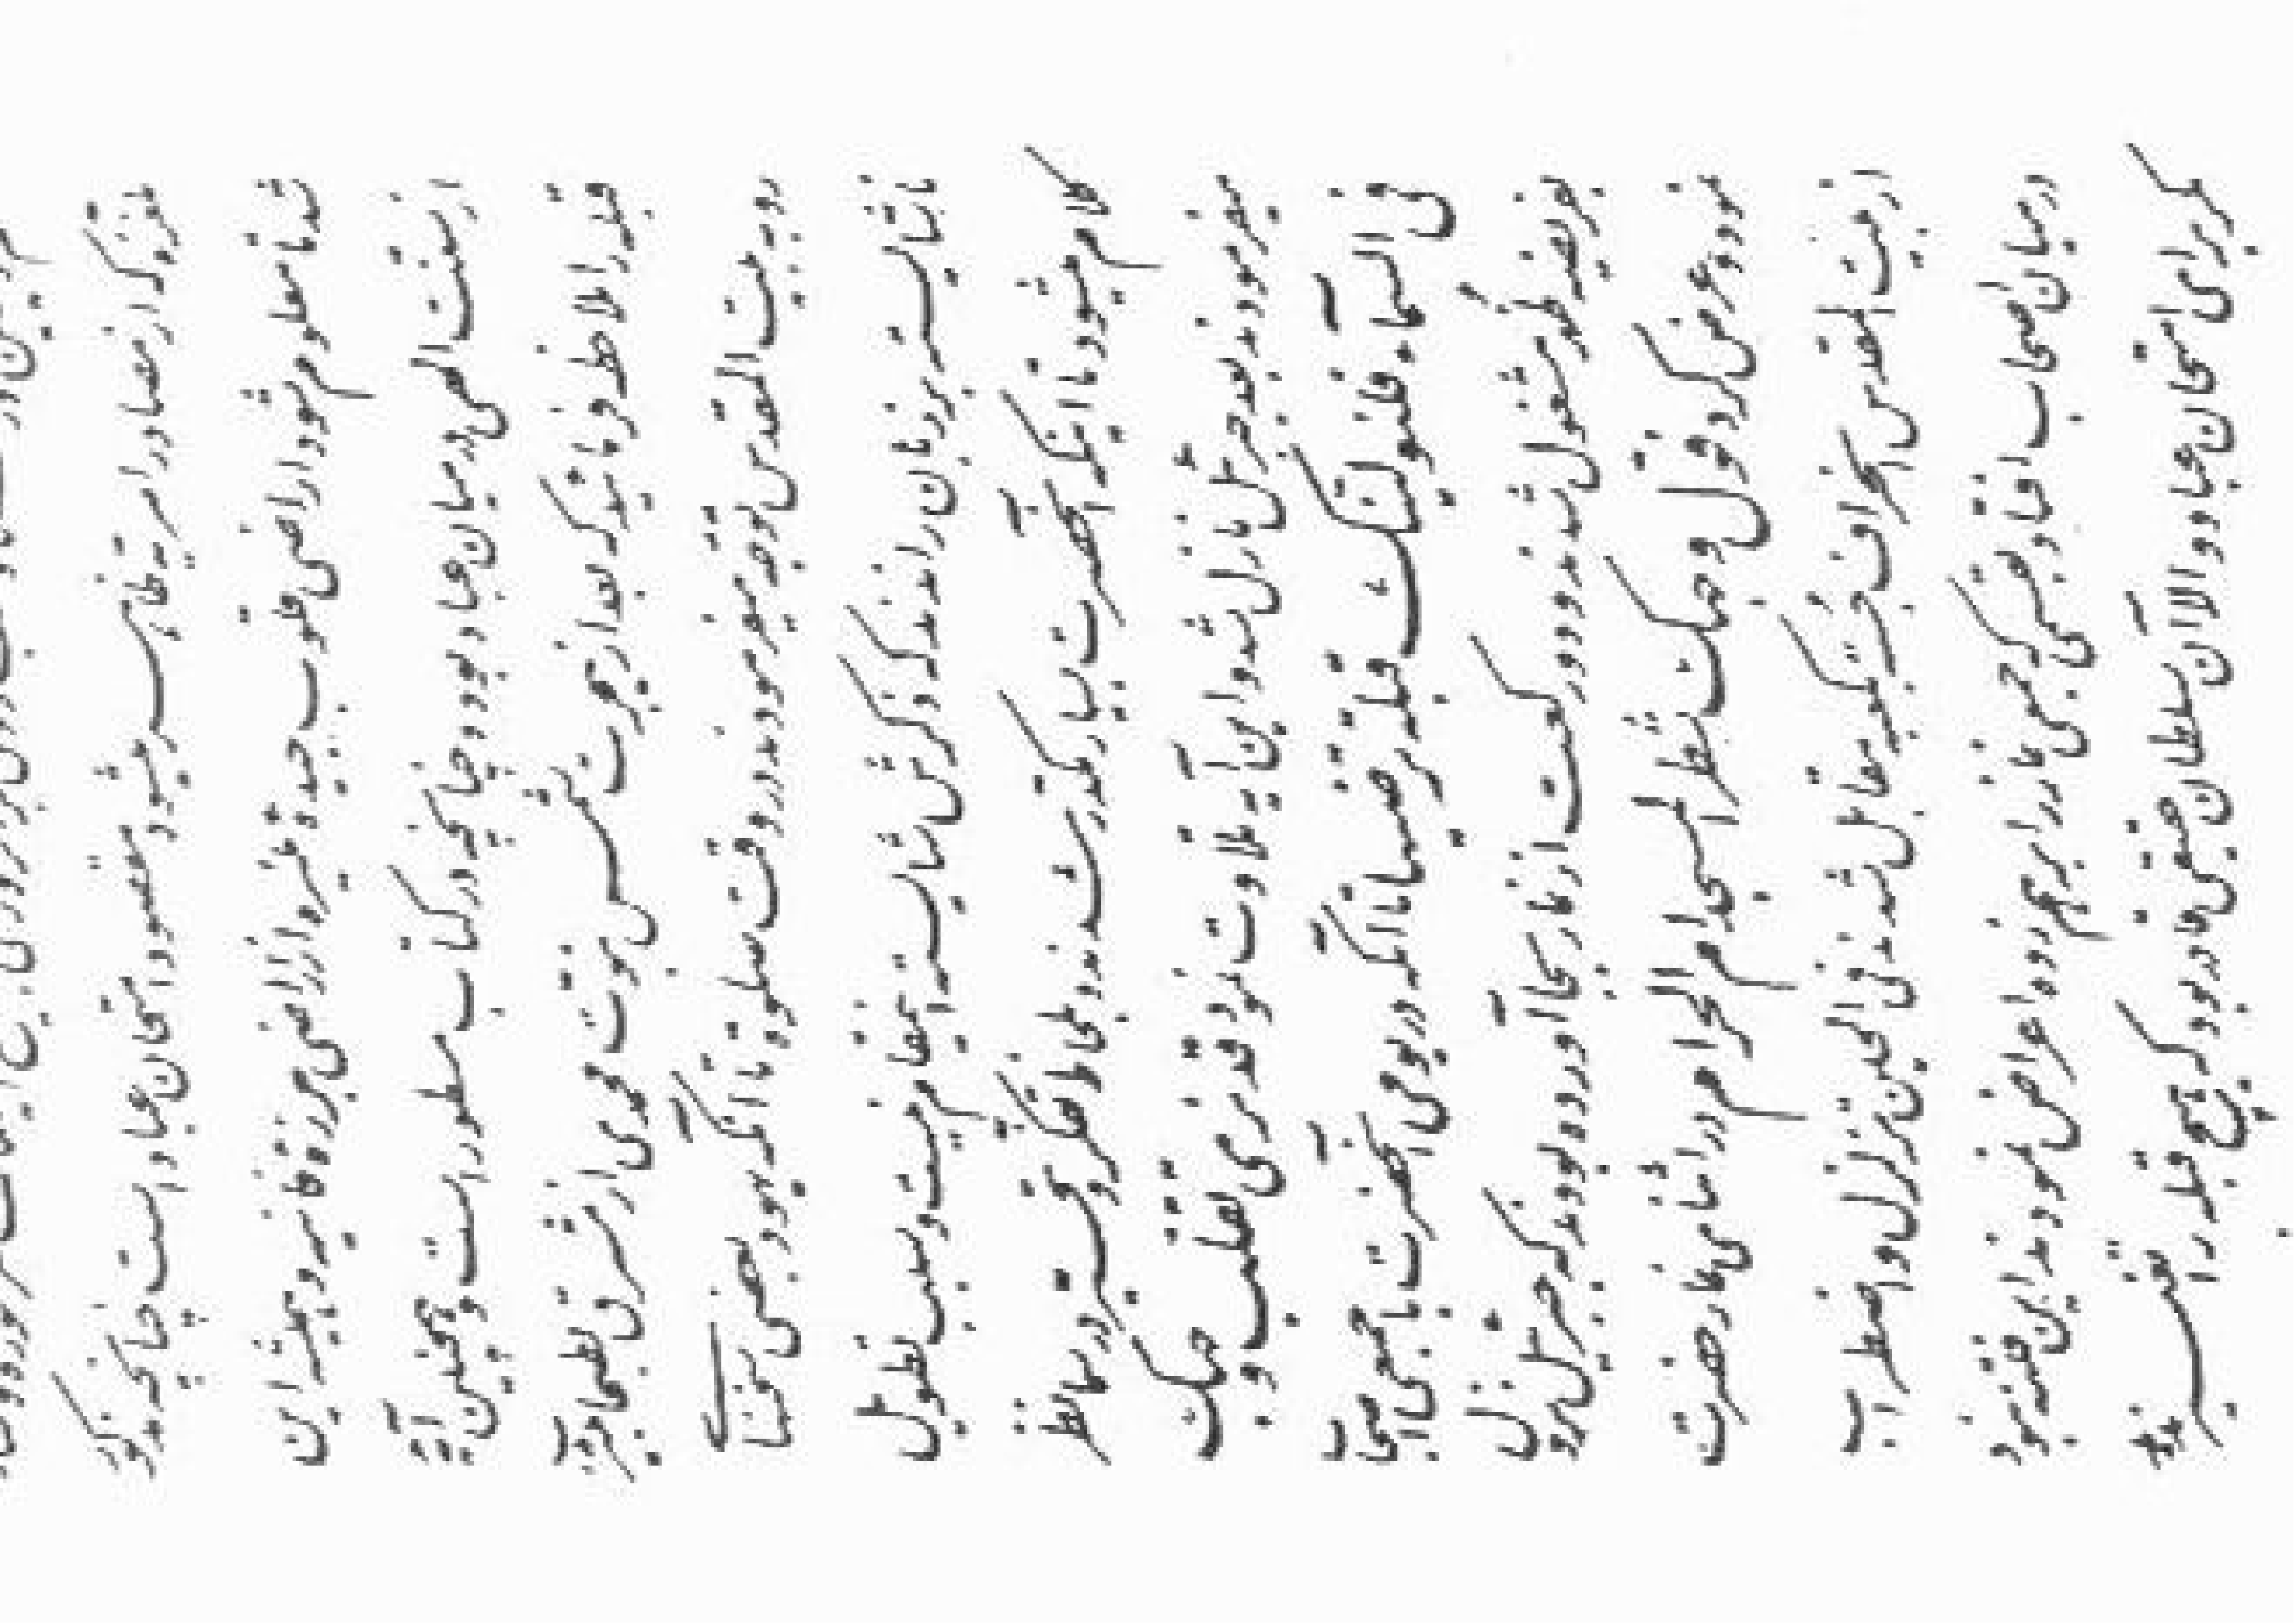 ملغزه که از مصادر امریه ظاهر میشود مقصود امتحان عباد است چنانچه مذکور
شد تا معلوم شود اراضی قلوب جیده منیره از اراضی جرزه فانیه و همیشه این
از سنت الهی در میان عباد بوده چنانچه در کتاب مسطور است و همچنین آیه
قبله را ملاحظه فرمائید که بعد از هجرت شمس نبوت محمدی از مشرق بطحا به یثرب
رو به بیت المقدس توجه میفرمودند در وقت صلوة تا آنکه یهود بعضی سخنهای
ناشایسته بر زبان راندند که ذکرش شایسته این مقام نیست و سبب تطویل
کلام میشود تا اینکه آنحضرت بسیار مکدر شدند و بلحاظ تفکر و تحیر در سما نظر
میفرمودند بعد جبرئیل نازل شد و این آیه تلاوت نمود قد نری تقلب وجهک
فی السماء فلنولینک قبلة ترضیها تا آنکه در یومی آنحضرت با جمعی اصحاب
بفریضه ظهر مشغول شدند و دو رکعت از نماز بجا آورده بودند که جبرئیل نزول
نمود و عرض کرد فول وجهک شطر المسجد الحرام در اثنای نماز حضرت
از بیت المقدس انحراف جسته بکعبه مقابل شدند فی الحین تزلزل و اضطراب
در میان اصحاب افتاد بقسمی که جمعی نماز را بر هم زده اعراض نمودند این فتنه نبود
مگر برای امتحان عباد و الا آن سلطان حقیقی قادر بود که هیچ قبله را تغییر ندهد